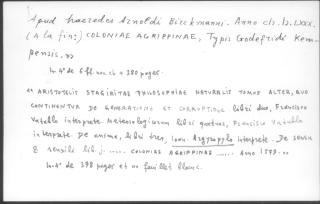 Apud haeredes Arnoldi Birckmanni. Anno cIɔ.Iɔ.LXXX.
(A la fin:) COLONIAE AGRIPPINAE, Typis Godefridi Kem-
pensis. »
In-4° de 6 ff. 380 pages.
«« ARISTOTELIS STAGIRITAE PHILOSOPHIAE NATURALIS TOMUS ALTER, QUO
CONTINENTUR DE GENERATIONE ET CORRUPTIONE libri duo, Francisco
Vatablo interprete. Meteorologicorum libri quatuor, Francisco Vatablo
interprete. De anima, libri tres, Ioan. Argyropylo interprete. De sensu
& sensili lib. j. ..... COLONIAE AGRIPPINAE ..... Anno 1579. »
In-4° de 398 pages et un feuillet blanc.